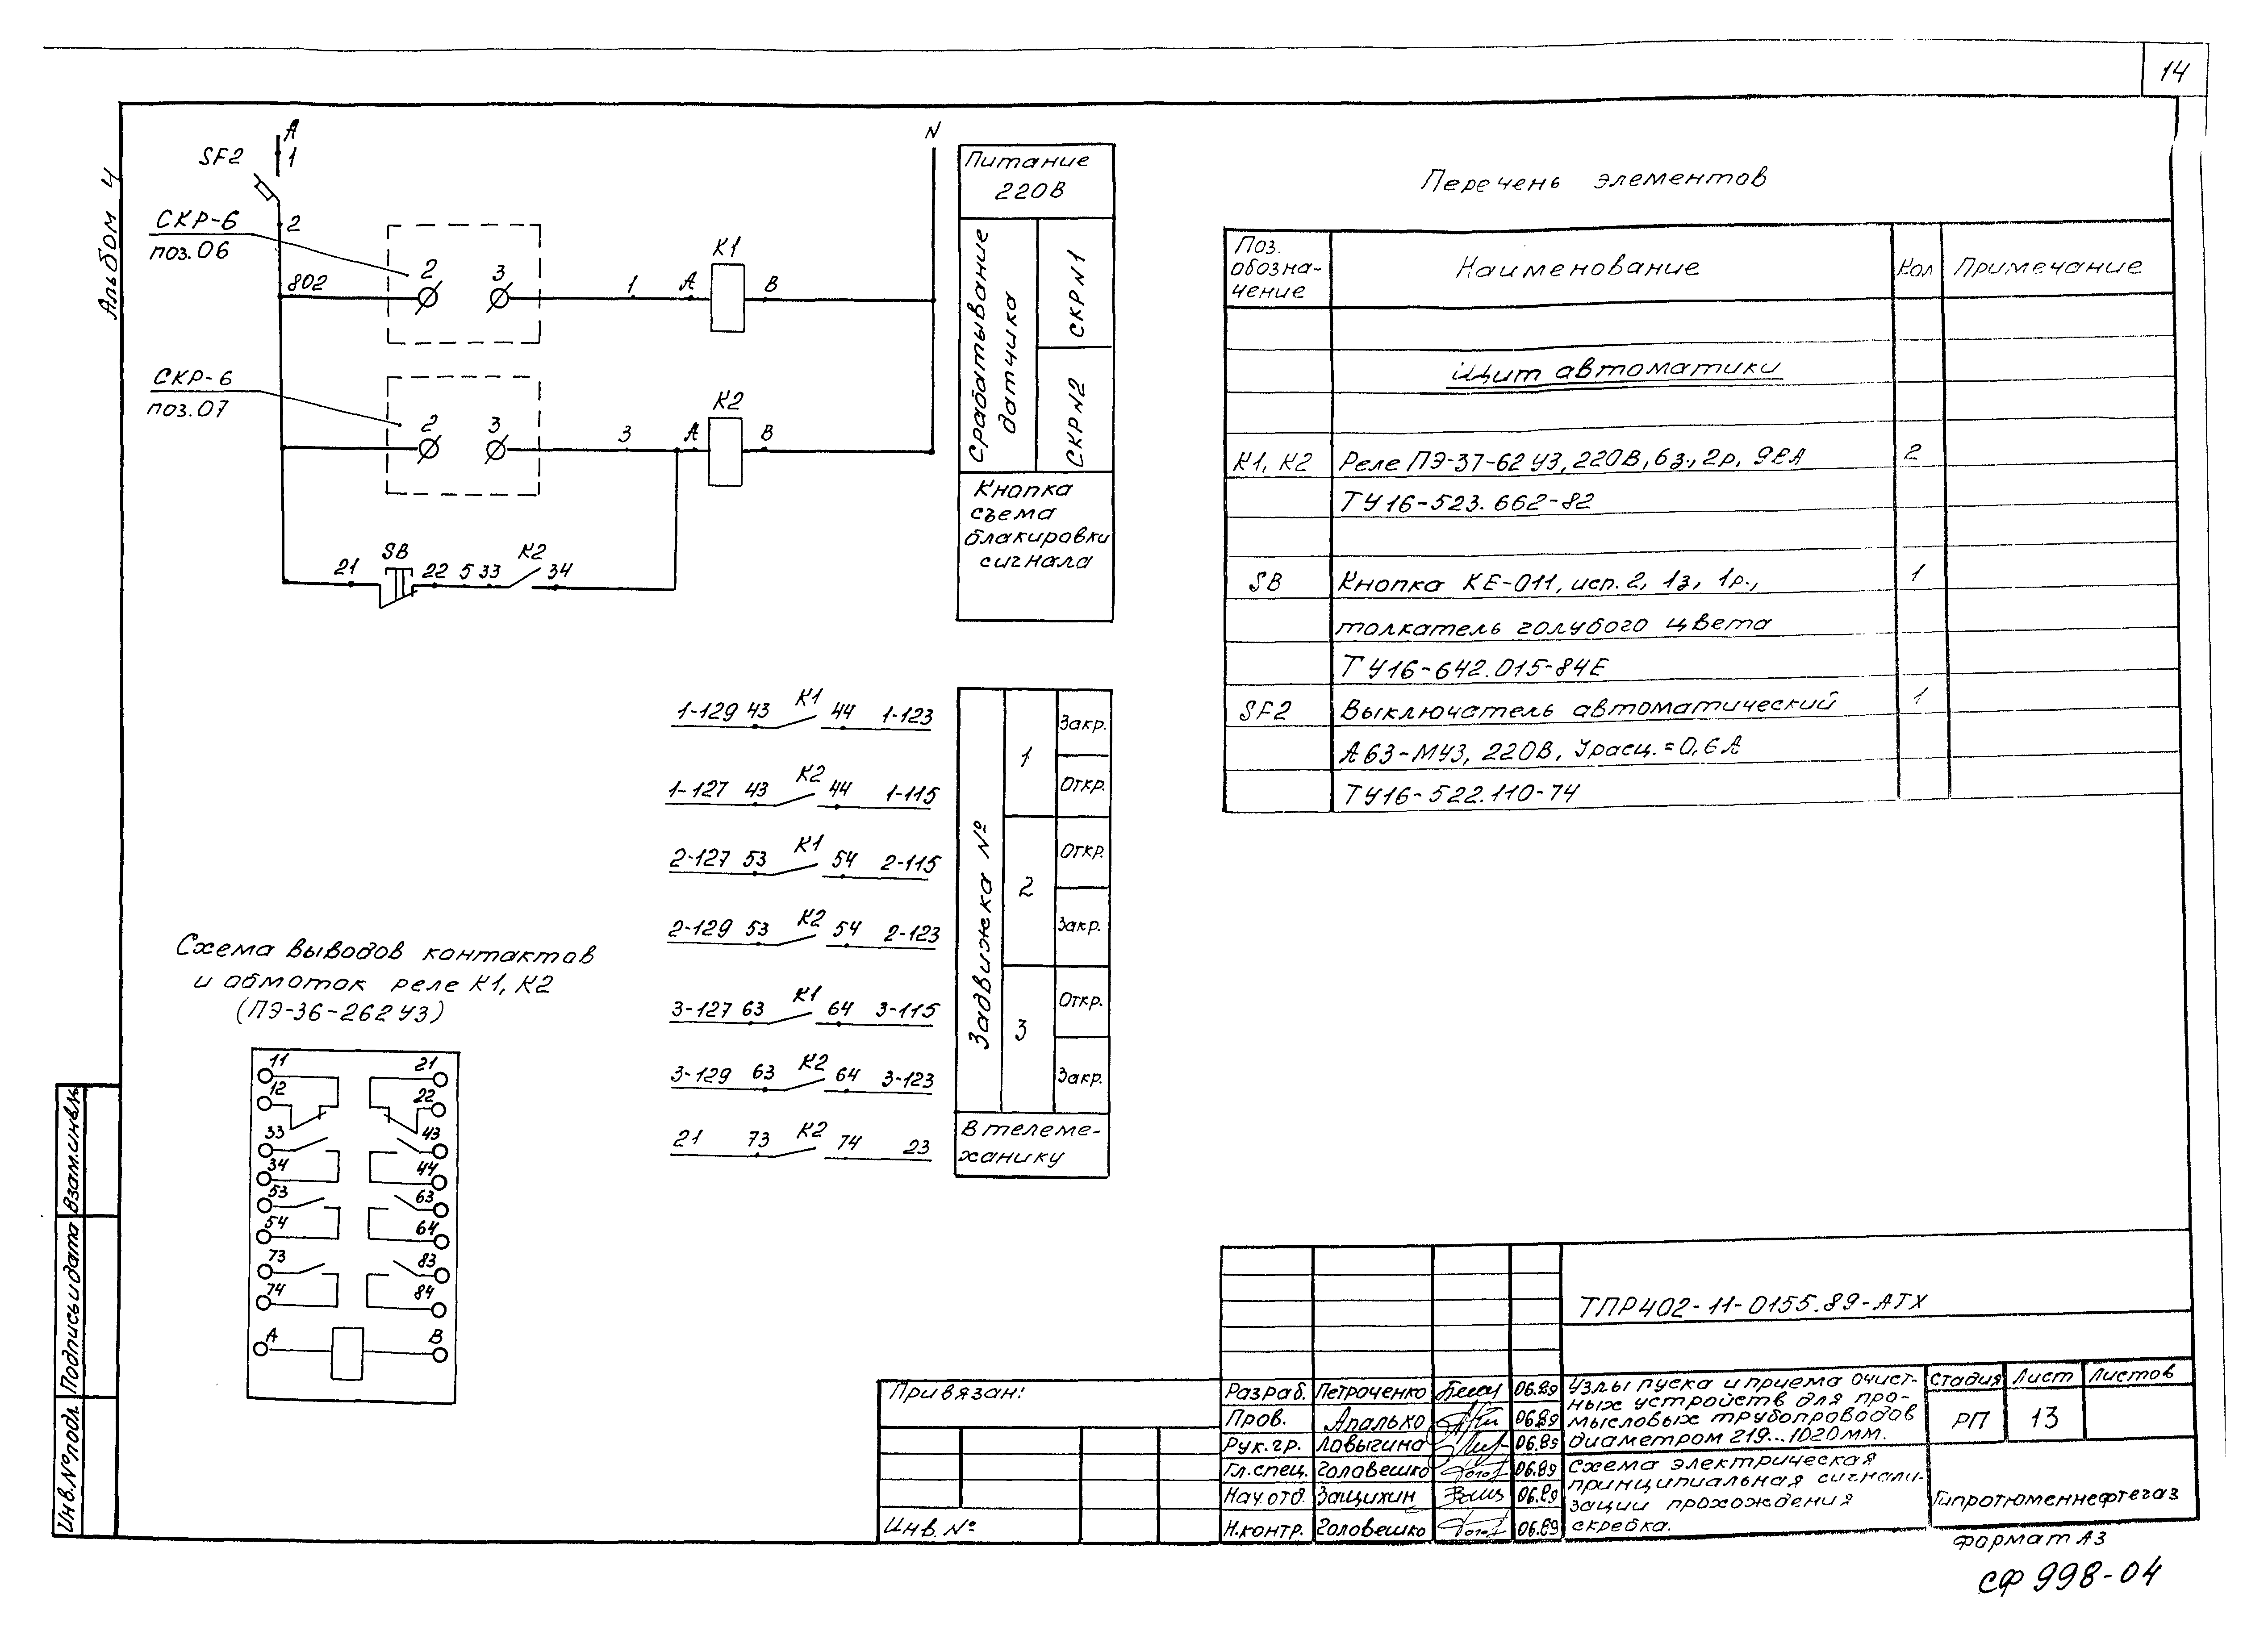 14
Альбом 4
А
1
SF2
2
СКР-6
поз.06
802
2
3
1
А
К1
В
N
СКР-6
поз.07
2
3
3
А
К2
В
21
SB
22
5
33
К2
34
Питание
220В
Срабатывание
датчика
СКР N1
СКР N2
Кнопка
съема
блакировки
сигнала
Перечень элементов
Поз.
обозна-
чение
Наименование
Кол
Примечание
Щит автоматики
К1, К2
Реле ПЭ-37-62 У3, 220В, 6з, 2р,
2
ТУ16-523.662-82
SB
Кнопка КЕ-011, исп. 2, 1з, 1р.,
1
толкатель голубого цвета
ТУ16-642.015-84Е
SF2
Выключатель автоматический
1
А63-МУ3, 220В, Урасц.=0,6А
ТУ16-522.110-74
1-129 43 К1 44 1-123
1-127 43 К2 44 1-115
2-127 53 К1 54 2-115
2-129 53 К2 54 2-123
3-127 63 К1 64 3-115
3-129 63 К2 64 3-123
21 73 К2 74 23
Задвижка №
1
Закр.
Откр.
2
Откр.
Закр.
3
Откр.
Закр.
В телеме-
ханику
Схема выводов контактов
и обмоток реле К1, К2
(ПЭ-36-262 У3)
11 21
12 22
33 43
34 44
53 63
54 64
73 83
74 84
А В
Инв.№подл.
Подпись и дата
Взам.инв.№
Привязан:
Инв. №
ТПР402-11-0155.89-АТХ
Разраб. Петроченко 06.89
Пров. Апалько 06.89
Рук.гр. Ловыгина 06.89
Гл.спец. Головешко 06.89
Нач.отд. Защихин 06.89
Н.контр. Головешко 06.89
Узлы пуска и приема очист-
ных устройств для про-
мысловых трубопроводов
диаметром 219...1020мм.
Стадия Лист Листов
РП 13
Схема электрическая
принципиальная сигнали-
зации прохождения
скребка.
Гипротюменнефтегаз
Формат А3
СФ 998-04